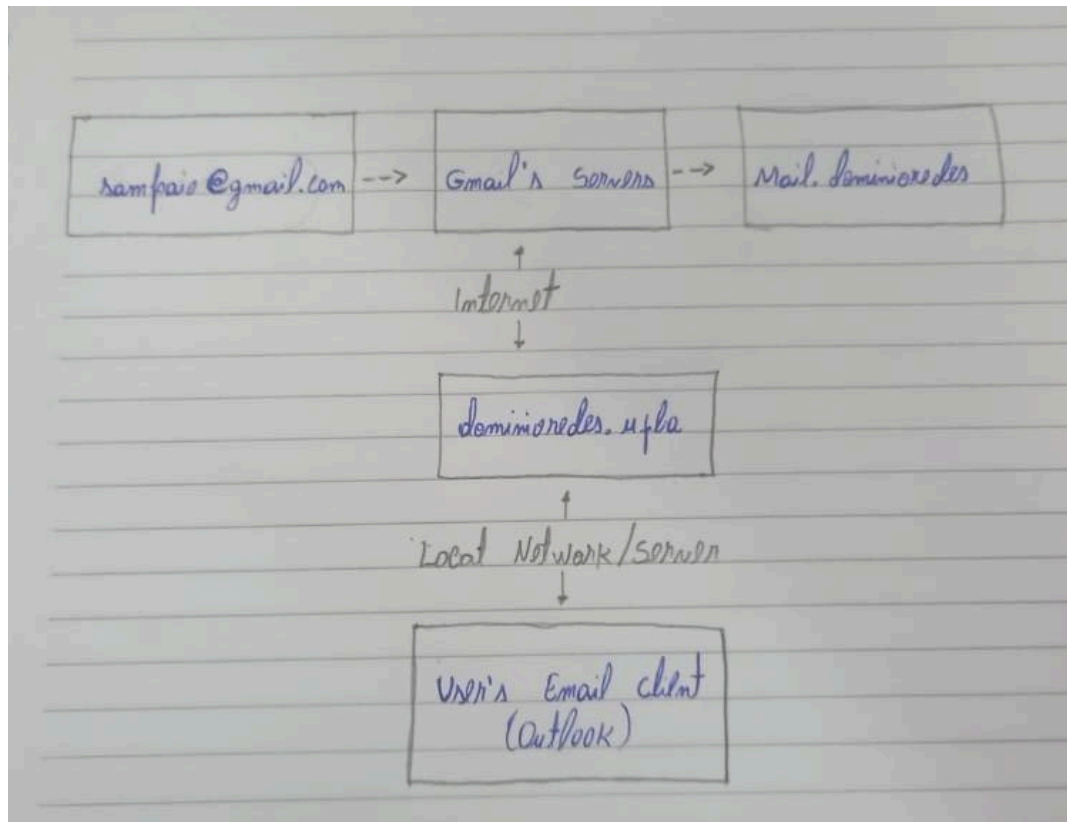 sampaio@gmail.com --> Gmail's Servers --> Mail.dominioredes
Internet
dominioredes.ufba
Local Network/Server
User's Email Client
(Outlook)